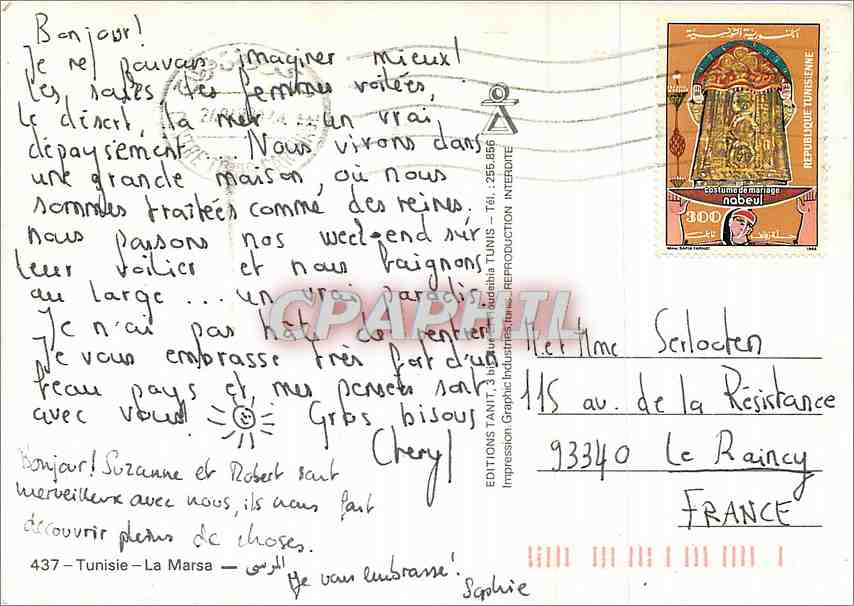 Bonjour!
Je ne pouvais imaginer mieux!
Les souks, les femmes voilées,
le désert, la mer un vrai
dépaysement. Nous vivons dans
une grande maison, où nous
sommes traitées comme des reines,
nous passons nos week-end sur
leur voilier et nous baignons
au large ... un vrai paradis.
Je n'ai pas hâte de rentrer!
Je vous embrasse très fort d'un
beau pays et mes pensées sont
avec vous! Gros bisous
Cheryl
Bonjour! Suzanne et Robert sont
merveilleux avec nous, ils nous font
découvrir pleins de choses.
Je vous embrasse!
Sophie
437 – Tunisie – La Marsa – المرسى
EDITIONS TANIT, 3 bis TUNIS – Tél. : 255.856
Impression Graphic Industries, Tunis. REPRODUCTION INTERDITE
الجمهورية التونسية
REPUBLIQUE TUNISIENNE
costume de mariage
nabeul
300
CPAPHIL
M. et Mme Serlooten
115 av. de la Résistance
93340 Le Raincy
FRANCE